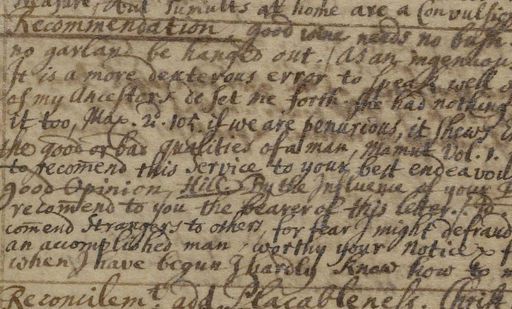 measure, but Tumults at home are a Convulsion
Recommendation, good wine needs no bush.
no garland be hanged out. / As an ingeniou
It is a more dexterous error to speak well o
of my Ancestors set me forth. he had nothing
it too, Max. 2. 105 if we are penurious, it shews
the good or bad qualities of a man, Vol. 1.
to recomend this Service to your best endeavou
good opinion Hill. By the influence of your
recomend to you the bearer of this letter.
comend Strangers to others, for fear I might defraud
an accomplished man, worthy your notice & f
when I have begun I hardly know how to
Reconcilemt. add Placableness. Christ